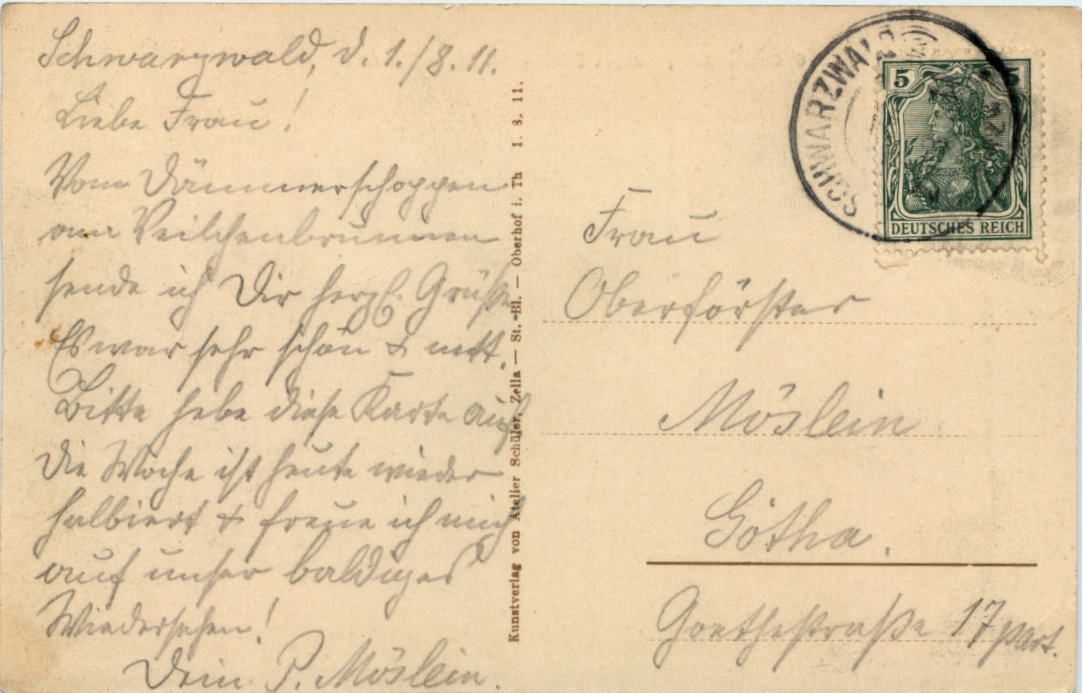 Schwarzwald, d. 1./8. 11.
Liebe Frau!
Vom Dämmerschoppen
am Veilchenbrunnen
sende ich Dir herzl. Grüße
Es war sehr schön & nett.
Bitte hebe diese Karte auf
Die Woche ist heute wieder
halbiert & freue ich mich
auf unser baldiges
Wiedersehen!
Dein P. Möslein.
Kunstverlag von Atelier Schüler, Zella — St.-Bl. — Oberhof i. Th 1. 8. 11.
SCHWARZWALD
5 5
DEUTSCHES REICH
Frau
Oberförster
Möslein
Gotha.
Goethestraße 17 part.